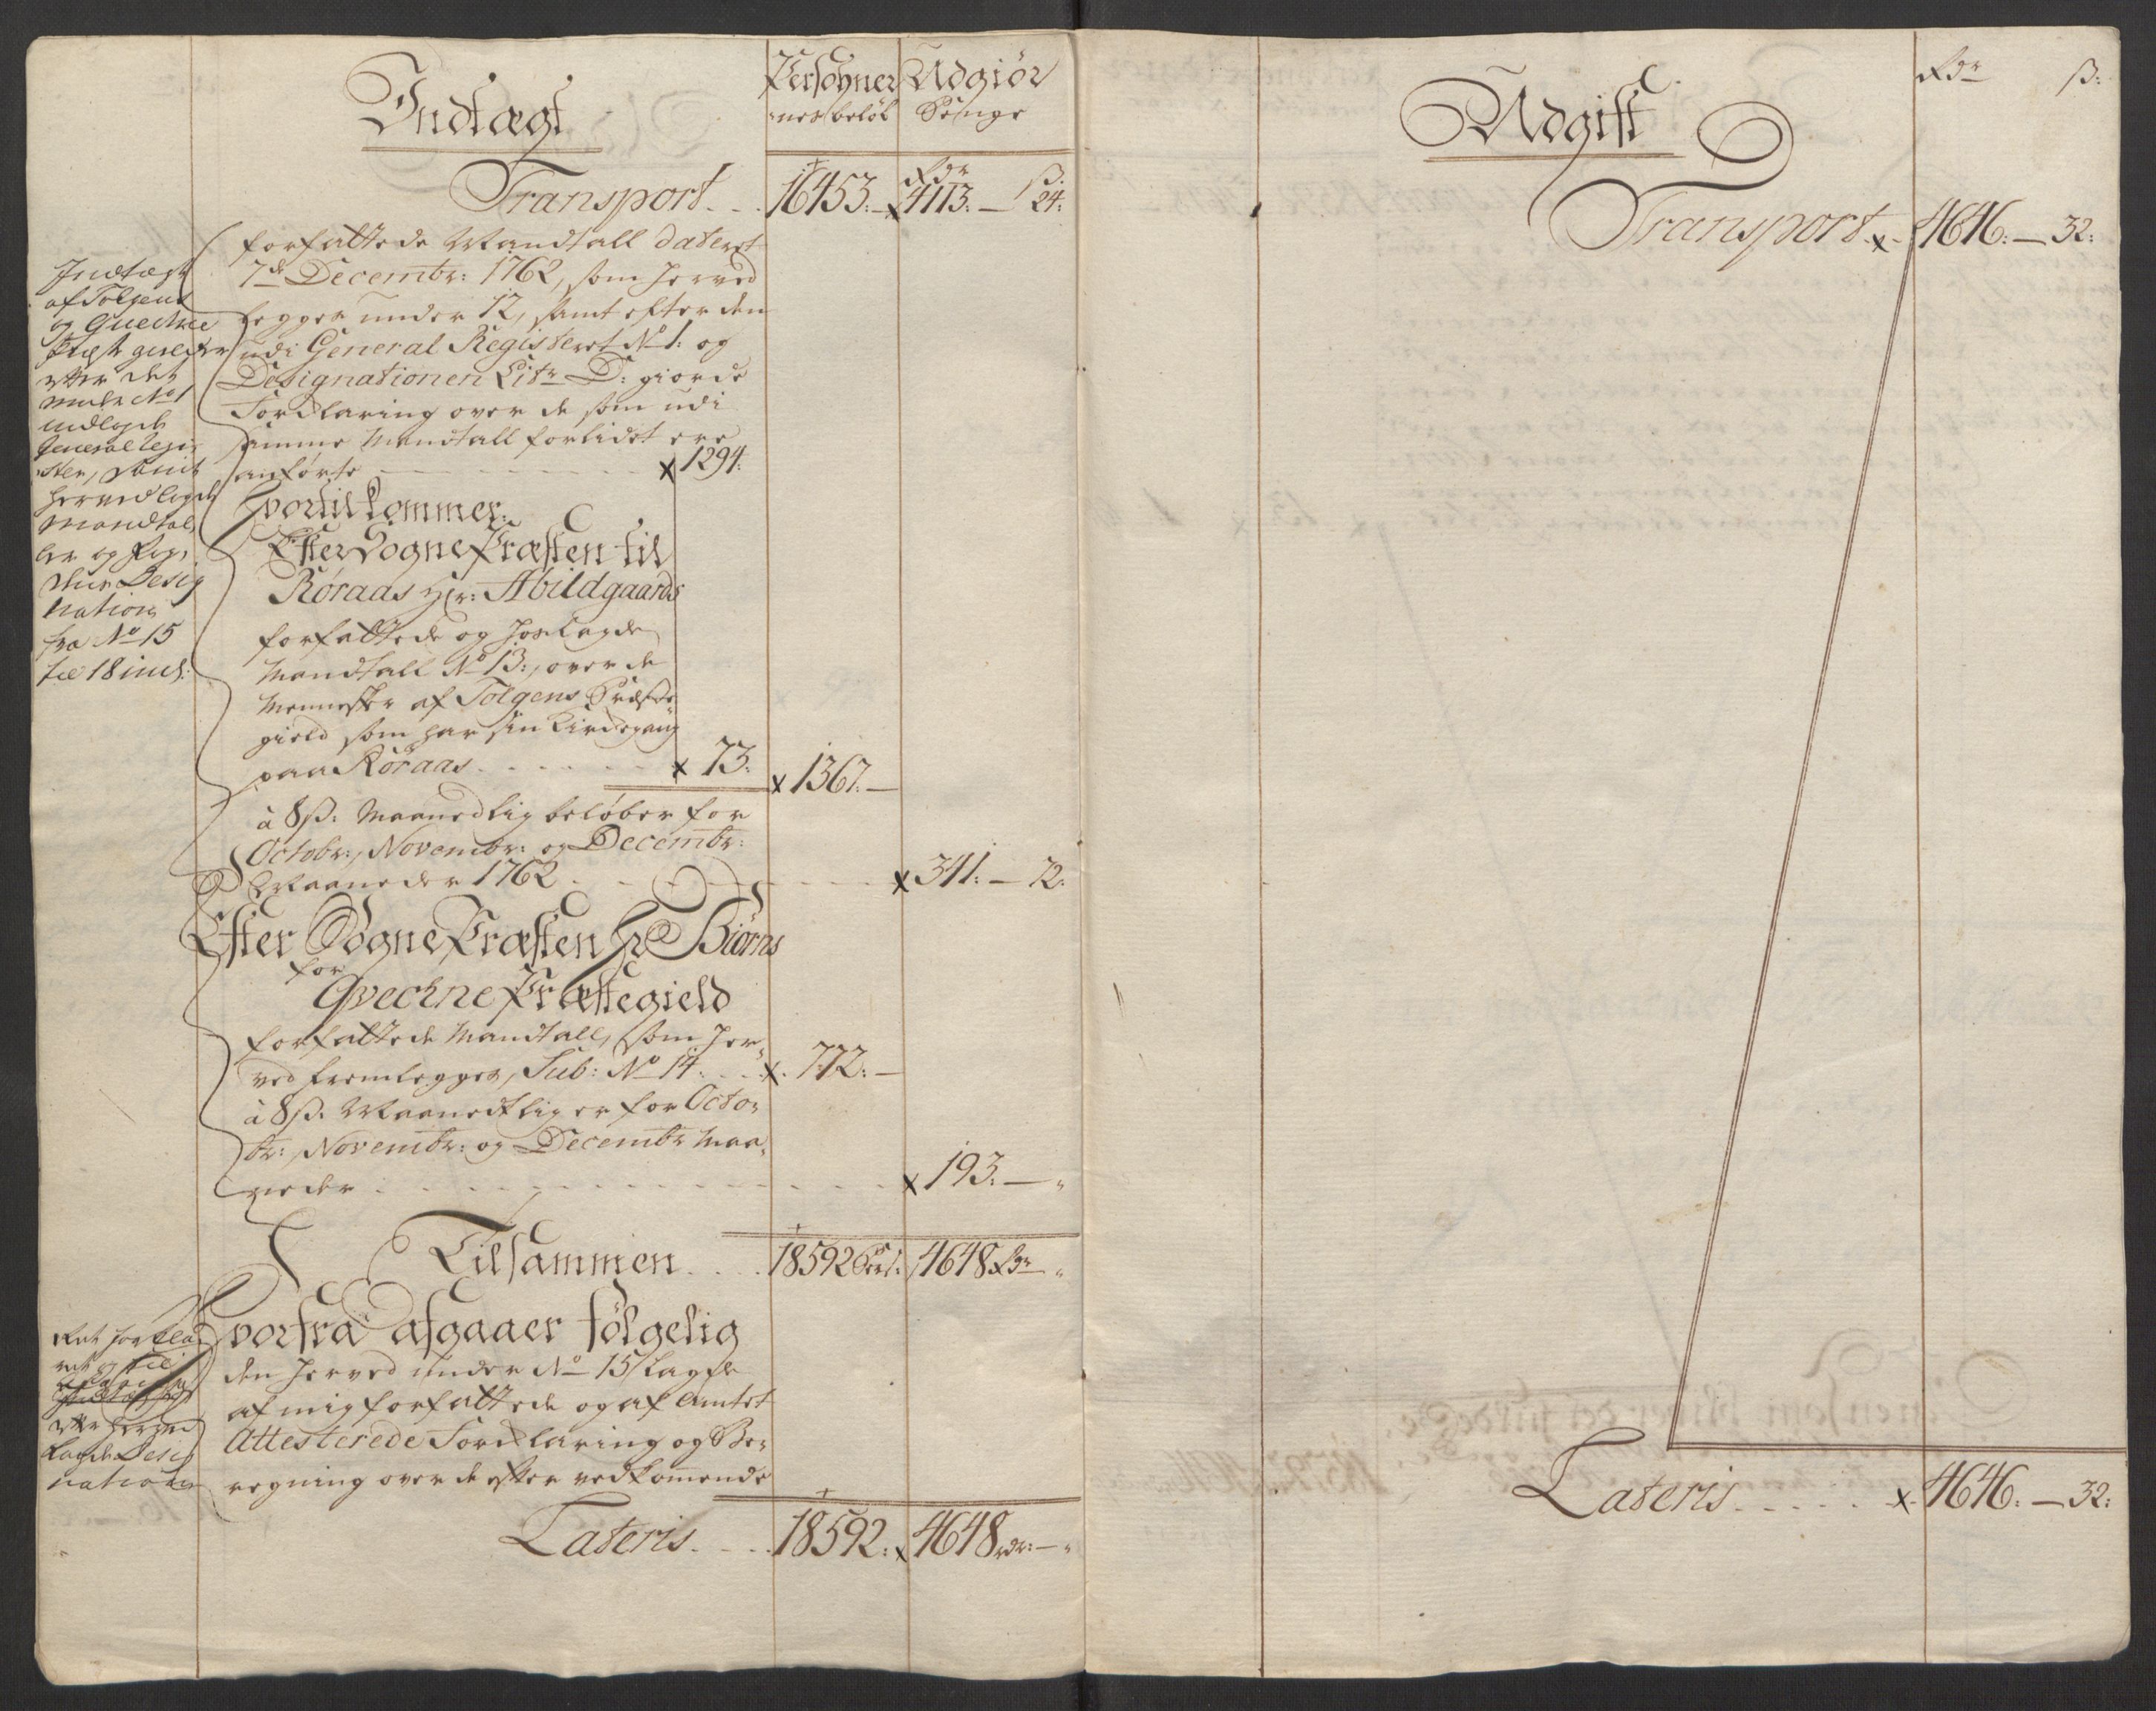 Indtægt
Persohner
nes beløb
Udgiør
Penge
Transport. . . 16453. 4113. 24:
Rdr ß:
forfattede Mandtall dateret
7de Decembr: 1762, som herved
legges under 12, samt efter den
udi General Registeret No 1: og
Designationen Litr D: giorde
Forklaring over de som udi
samme Mandtall forlidet ere
anførte 1294:
Hvortil kommer:
Efter Sogne Præsten til
Røraas Hr: Abildgaards
forfattede og her lagde
Mandtall No 13:, over de
Mennesker af Tolgens Præste
gield som har sin Kirkegang
paa Røraas. . . . . . x 73: x 1367.
à 8 ß: Maanedlig beløber for
Octobr:, Novembr: og Decembr:
Maaneder 1762 . . . x 341: 72:
Efter Sogne Præsten Hr Biørns
for
Qvechne Præstegield
forfattede Mandtall, som her-
ved fremlegges, Sub: No 14: . . x. 772:
à 8 ß. Maanedtlig er for Octo-
br:, Novembr: og Decembr Maa-
neder . . . x 193. "
Tilsammen. . . . 18592 Pers: 4648 Rdr "
Hvorfra afgaaer følgelig
den herved under No 15 lagde
af mig forfattede og af Amtet
Attesterede Forklaring og Be-
regning over de efter vedkommende
Lateris. . . . 18592. x 4648 rdr: "
Indtægt
af Tolgens
og Quechne
Præstegielder
efter det
under No 1
indlagde
General Regi-
ster, samt
herved lagde
Mandtal
ler og
Desig
nation
fra No 15
til 18 incl:
efter herved
lagde Desig
nation
Udgift
Rdr ß:
Transport. x. 4646. 32:
Lateris. . . . . x. 4646. 32: